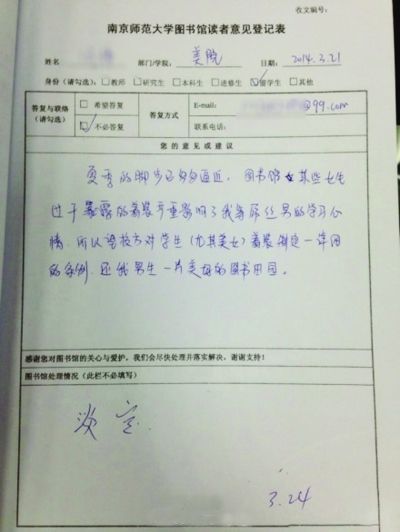 收文编号：
南京师范大学图书馆读者意见登记表
姓名 部门/学院： 美院 日期： 2014.3.21
身份（请勾选）： □教师 □研究生 □本科生 □进修生 ☑留学生 □其他
答复与联络（请勾选） □ 希望答复 ☑ 不必答复 答复方式 E-mail: @qq.com
联系电话：
您的意见或建议
夏季的脚步已匆匆逼近，图书馆女某些女生
过于暴露的着装严重影响了我等屌丝男的学习心
情，所以望校方对学生（尤其美女）着装制定一详明
的条例，还我男生一片美好的图书田园。
感谢您对图书馆的关心与爱护，我们会尽快处理并落实解决，谢谢支持！
图书馆处理情况（此栏不必填写）
淡定.
3.24